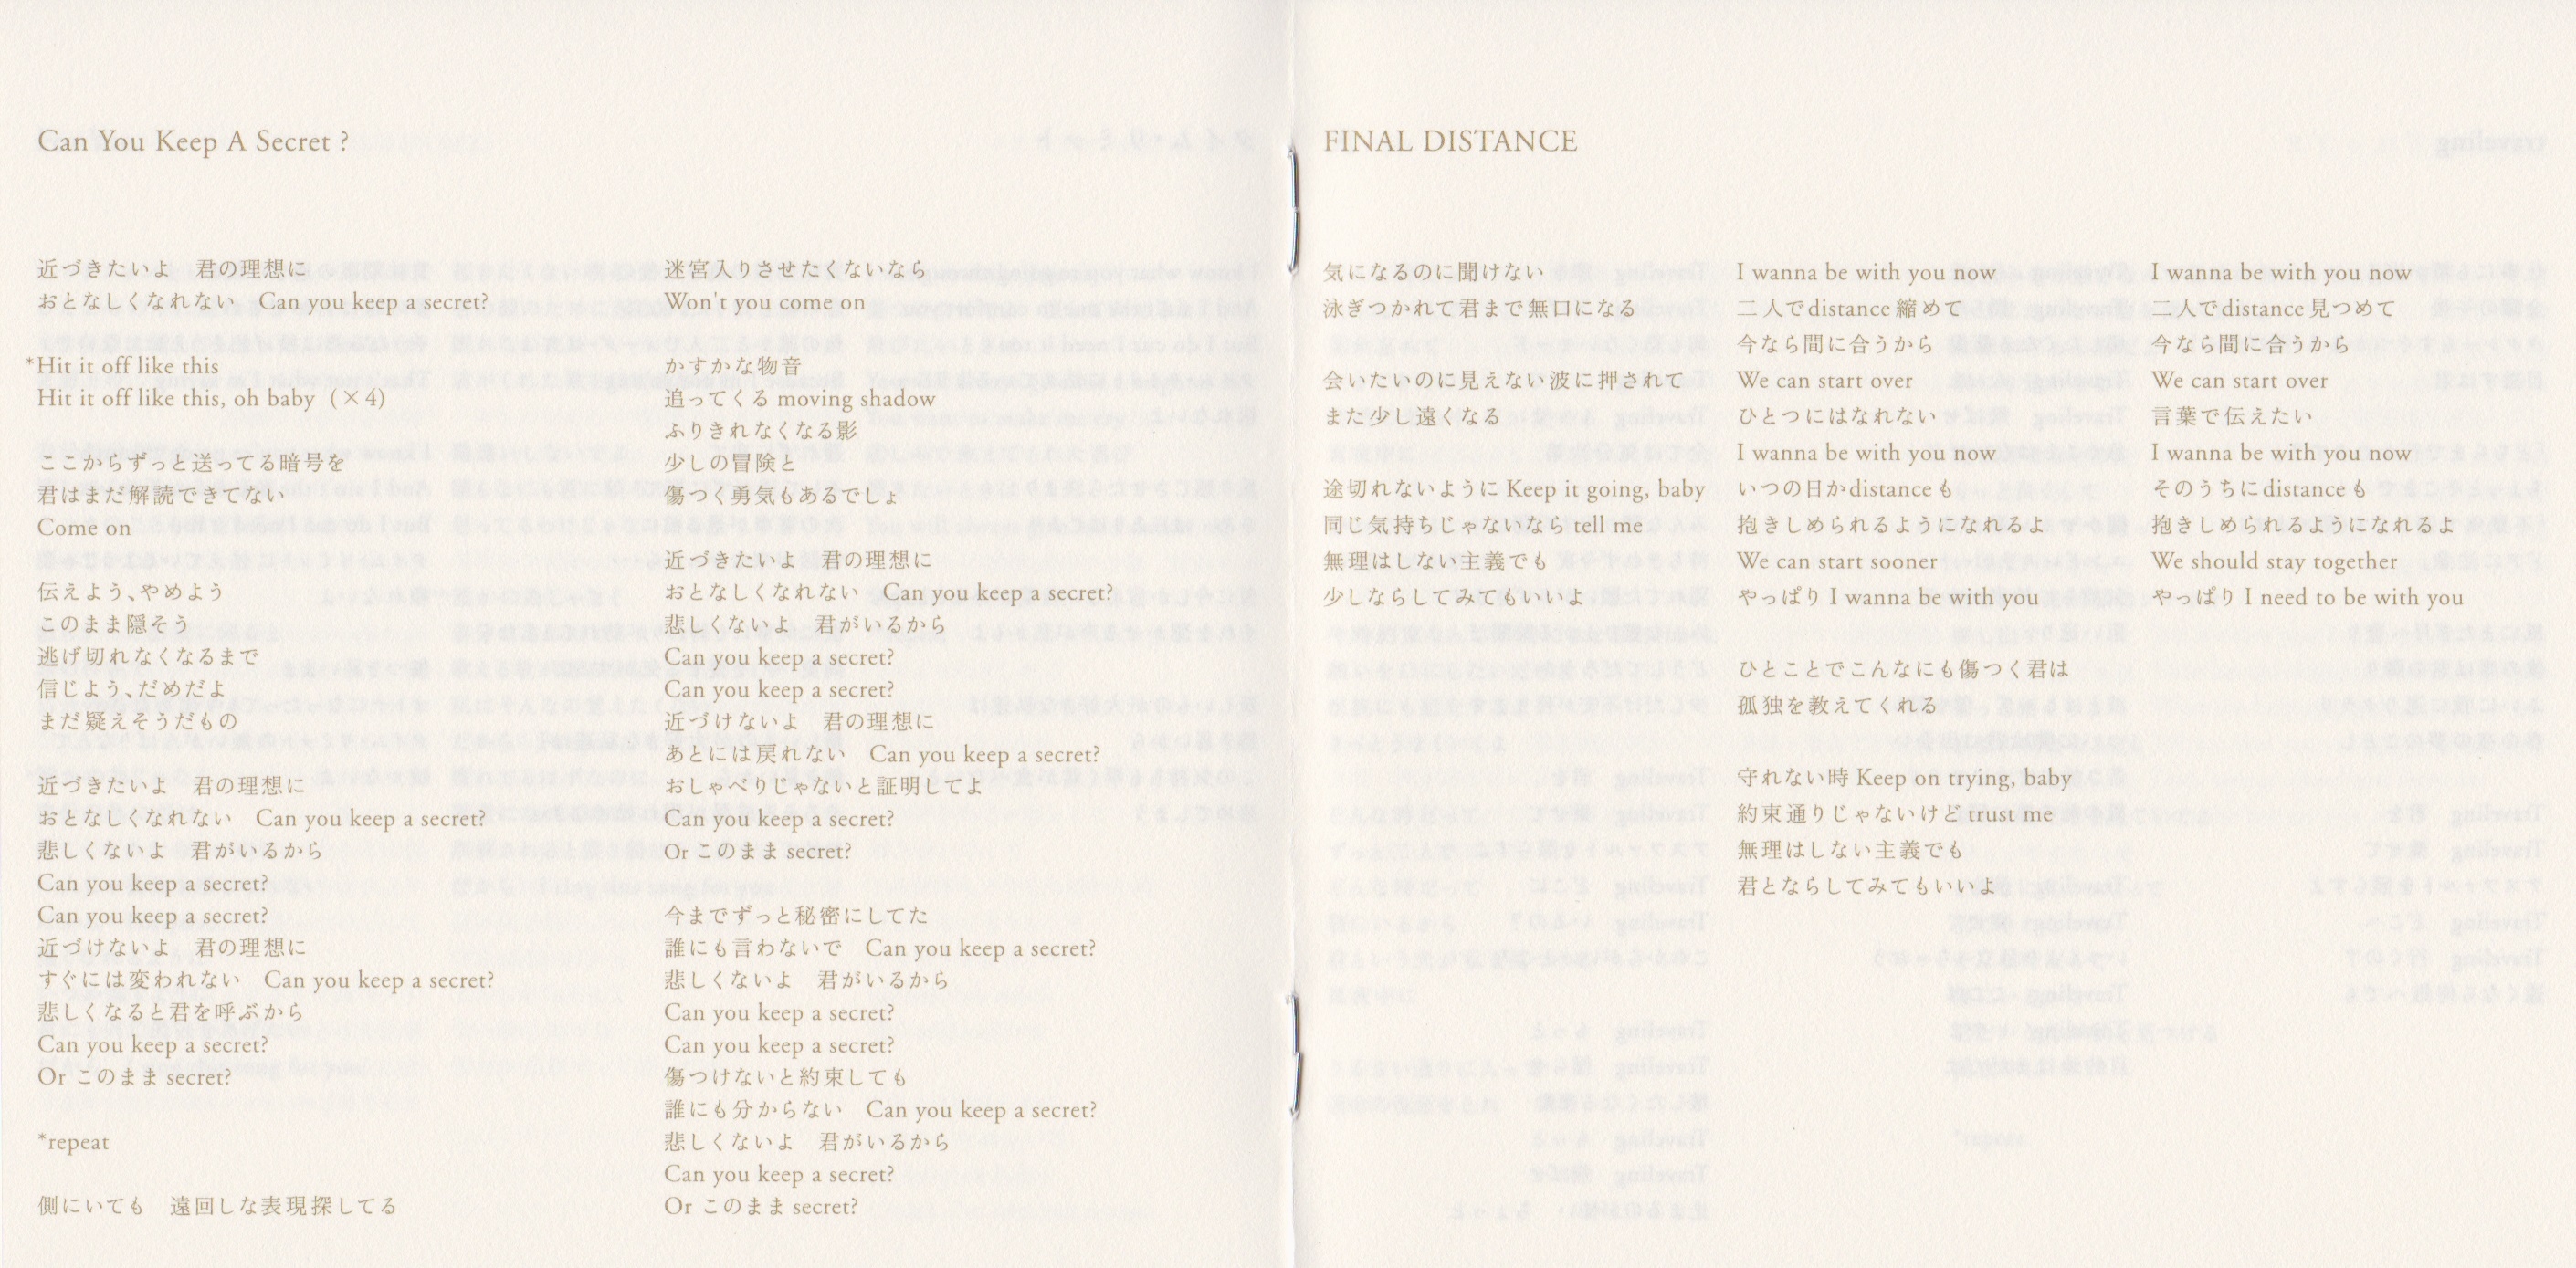 Can You Keep A Secret ?
近づきたいよ　君の理想に
おとなしくなれない　Can you keep a secret?
*Hit it off like this
Hit it off like this, oh baby（×4）
ここからずっと送ってる暗号を
君はまだ解読できてない
Come on
伝えよう、やめよう
このまま隠そう
逃げ切れなくなるまで
信じよう、だめだよ
まだ疑えそうだもの
近づきたいよ　君の理想に
おとなしくなれない　Can you keep a secret?
悲しくないよ　君がいるから
Can you keep a secret?
Can you keep a secret?
近づけないよ　君の理想に
すぐには変われない　Can you keep a secret?
悲しくなると君を呼ぶから
Can you keep a secret?
Or このまま secret?
*repeat
側にいても　遠回しな表現探してる
迷宮入りさせたくないなら
Won't you come on
かすかな物音
追ってくる moving shadow
ふりきれなくなる影
少しの冒険と
傷つく勇気もあるでしょ
近づきたいよ　君の理想に
おとなしくなれない　Can you keep a secret?
悲しくないよ　君がいるから
Can you keep a secret?
Can you keep a secret?
近づけないよ　君の理想に
あとには戻れない　Can you keep a secret?
おしゃべりじゃないと証明してよ
Can you keep a secret?
Or このまま secret?
今までずっと秘密にしてた
誰にも言わないで　Can you keep a secret?
悲しくないよ　君がいるから
Can you keep a secret?
Can you keep a secret?
傷つけないと約束しても
誰にも分からない　Can you keep a secret?
悲しくないよ　君がいるから
Can you keep a secret?
Or このまま secret?
FINAL DISTANCE
気になるのに聞けない
泳ぎつかれて君まで無口になる
会いたいのに見えない波に押されて
また少し遠くなる
途切れないように Keep it going, baby
同じ気持ちじゃないなら tell me
無理はしない主義でも
少しならしてみてもいいよ
I wanna be with you now
二人でdistance縮めて
今なら間に合うから
We can start over
ひとつにはなれない
I wanna be with you now
いつの日かdistanceも
抱きしめられるようになれるよ
We can start sooner
やっぱり I wanna be with you
ひとことでこんなにも傷つく君は
孤独を教えてくれる
守れない時 Keep on trying, baby
約束通りじゃないけど trust me
無理はしない主義でも
君とならしてみてもいいよ
I wanna be with you now
二人でdistance見つめて
今なら間に合うから
We can start over
言葉で伝えたい
I wanna be with you now
そのうちにdistanceも
抱きしめられるようになれるよ
We should stay together
やっぱり I need to be with you